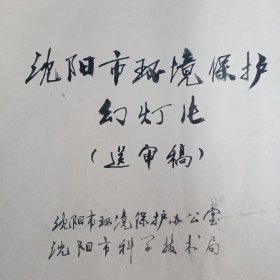 沈阳市环境保护
幻灯片
(送审稿)
沈阳市环境保护办公室
沈阳市科学技术局